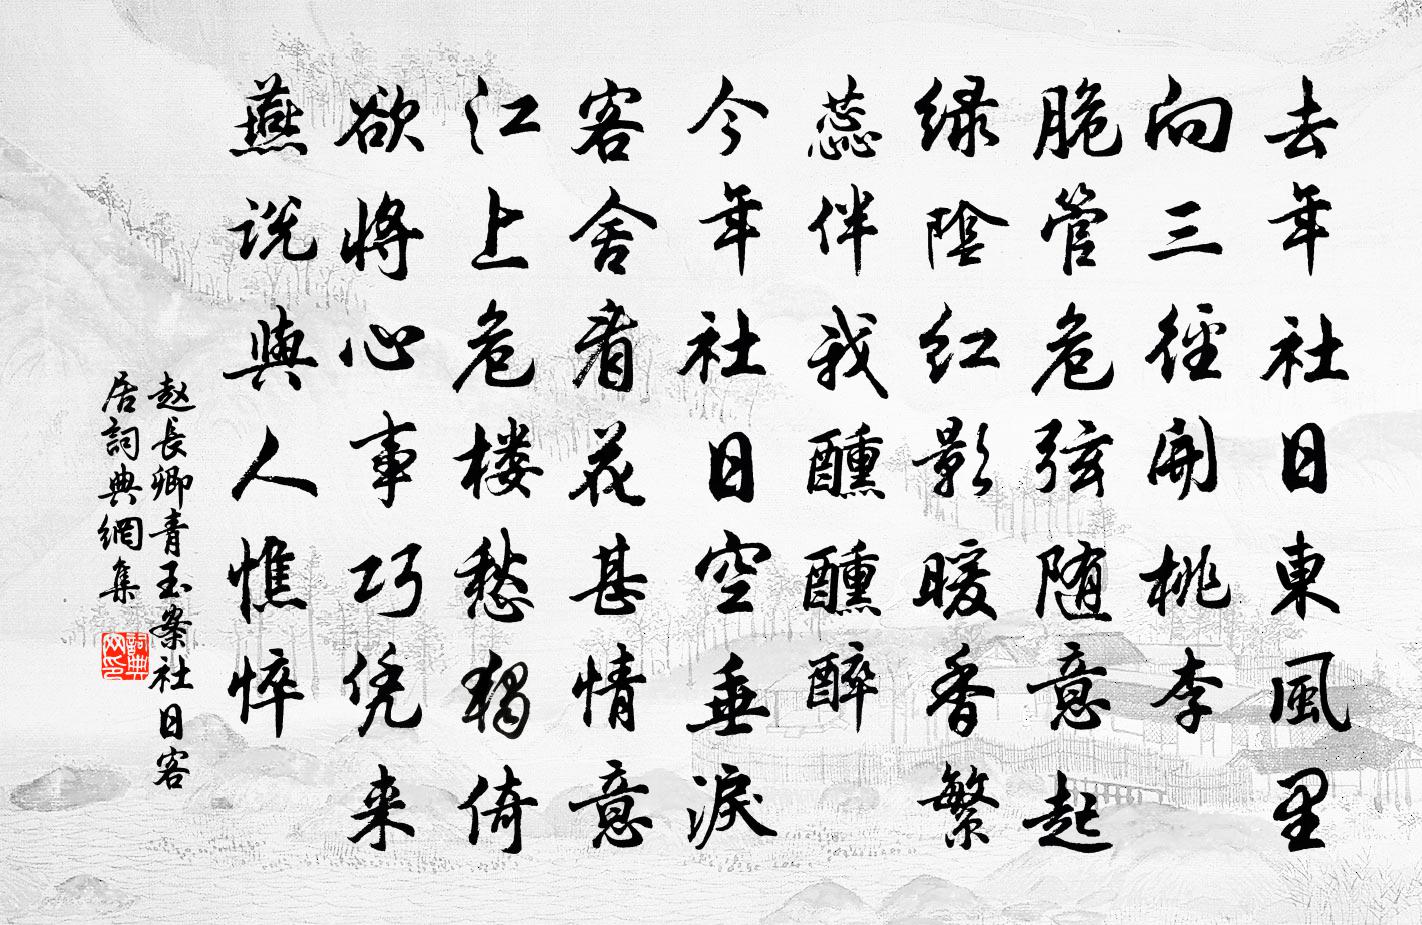 去年社日東風里
向三徑開桃李
脆管危弦随意起
绿陰红影暖香繁
蕊伴我醺醺醉
今年社日空垂淚
客舍看花甚情意
江上危楼愁獨倚
欲将心事巧凭来
燕说與人憔悴
赵長卿青玉案社日客
居詞典網集